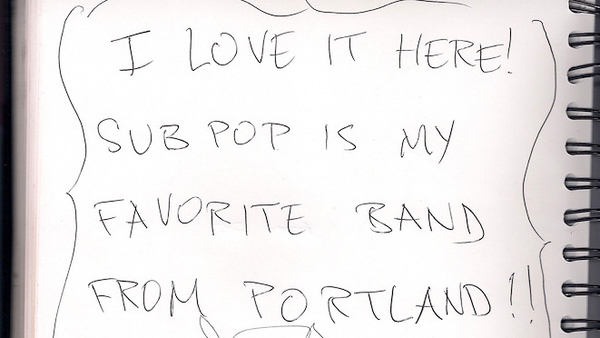 I LOVE IT HERE!
SUB POP IS MY
FAVORITE BAND
FROM PORTLAND!!